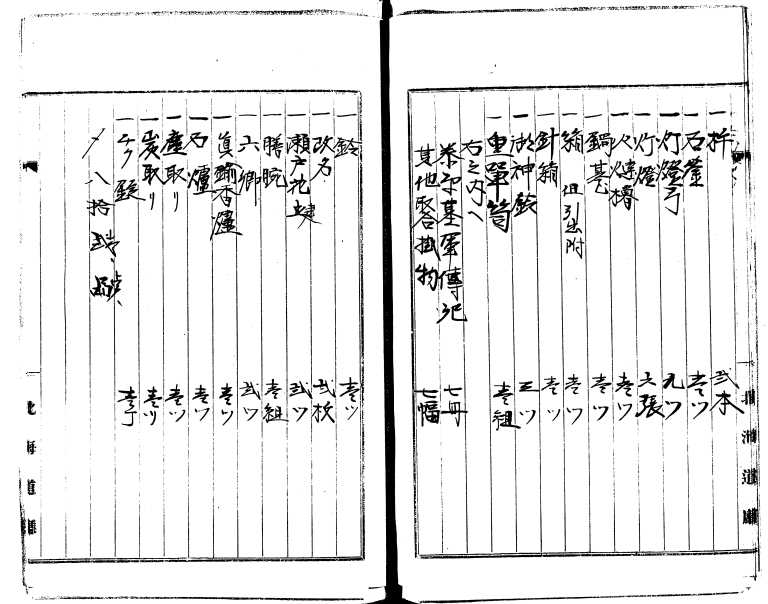 一 杵 弐本
一 石釜 壱ツ
一 灯燈弓 九ツ
一 灯燈 六張
一 火燵櫓 壱ツ
一 鍋蓋 壱ツ
一 箱 但引出附 壱ツ
一 針箱 壱ツ
一 神鈴 三ツ
一 重箪笥 壱組
右之内へ
傳記 七冊
其他 掛物 七幅
一 鈴 壱ツ
一 改名 弐枚
一 瀬戸花 弐ツ
一 膳腕 壱組
一 六郷 弐ツ
一 真鍮香爐 壱ツ
一 石爐 壱ツ
一 塵取り 壱ツ
一 炭取り 壱ツ
一 壱丁
〆八拾
北海道廳